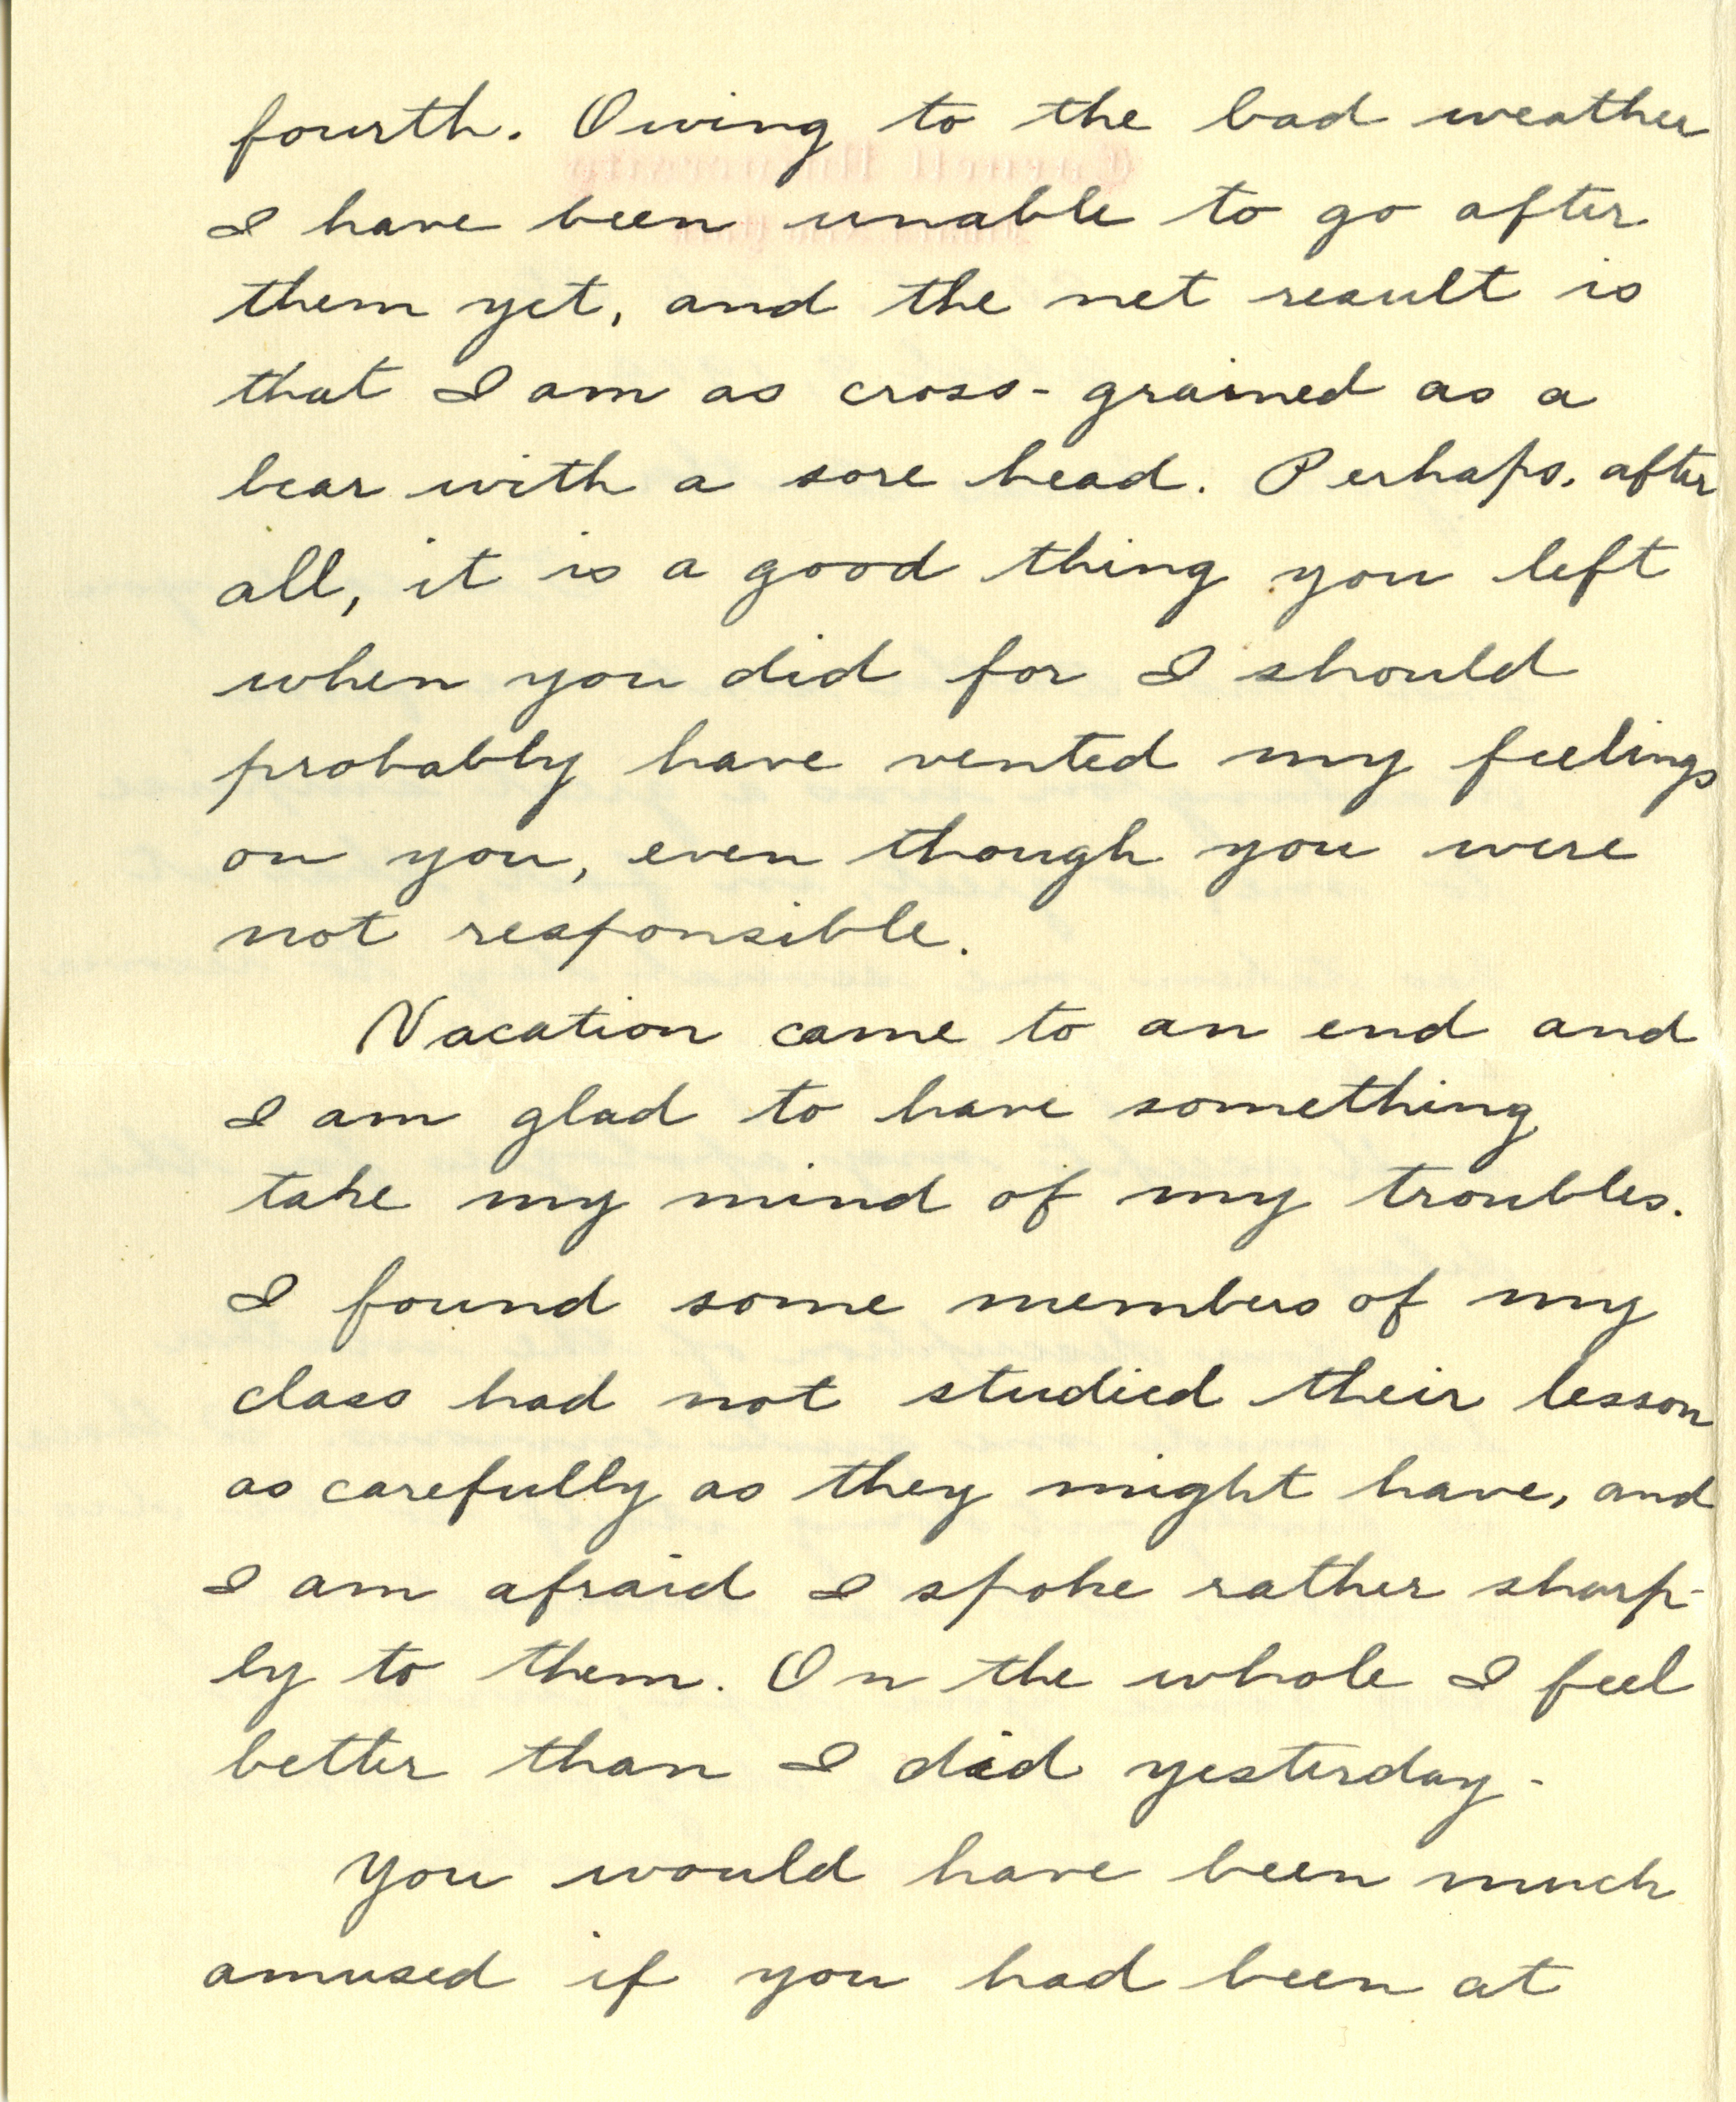 fourth. Owing to the bad weather
I have been unable to go after
them yet, and the net result is
that I am as cross-grained as a
bear with a sore head. Perhaps, after
all, it is a good thing you left
when you did for I should
probably have vented my feelings
on you, even though you were
not responsible.
Vacation came to an end and
I am glad to have something
take my mind of my troubles.
I found some members of my
class had not studied their lesson
as carefully as they might have, and
I am afraid I spoke rather sharp-
ly to them. On the whole I feel
better than I did yesterday-
You would have been much
amused if you had been at